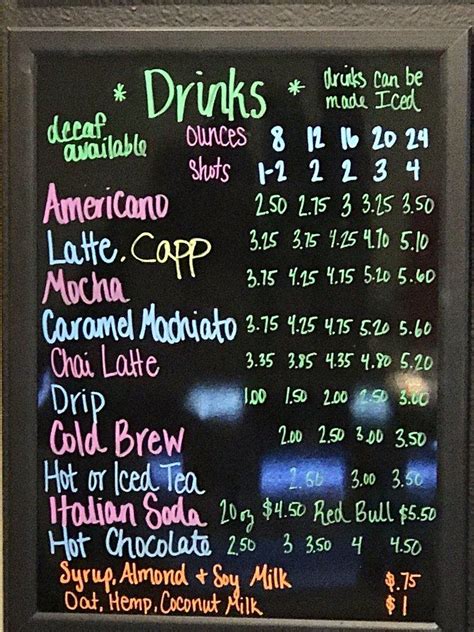 * Drinks * drinks can be made Iced
decaf available
ounces 8 12 16 20 24
shots 1-2 2 2 3 4
Americano 2.50 2.75 3 3.25 3.50
Latte. Capp 3.25 3.75 4.25 4.70 5.10
Mocha 3.75 4.25 4.75 5.20 5.60
Caramel Machiato 3.75 4.25 4.75 5.20 5.60
Chai Latte 3.35 3.85 4.35 4.80 5.20
Drip 1.00 1.50 2.00 2.50 3.00
Cold Brew 2.00 2.50 3.00 3.50
Hot or Iced Tea 2.50 3.00 3.50
Italian Soda 20oz $4.50 Red Bull $5.50
Hot Chocolate 2.50 3 3.50 4 4.50
Syrup, Almond + Soy Milk $.75
Oat, Hemp, Coconut Milk $1